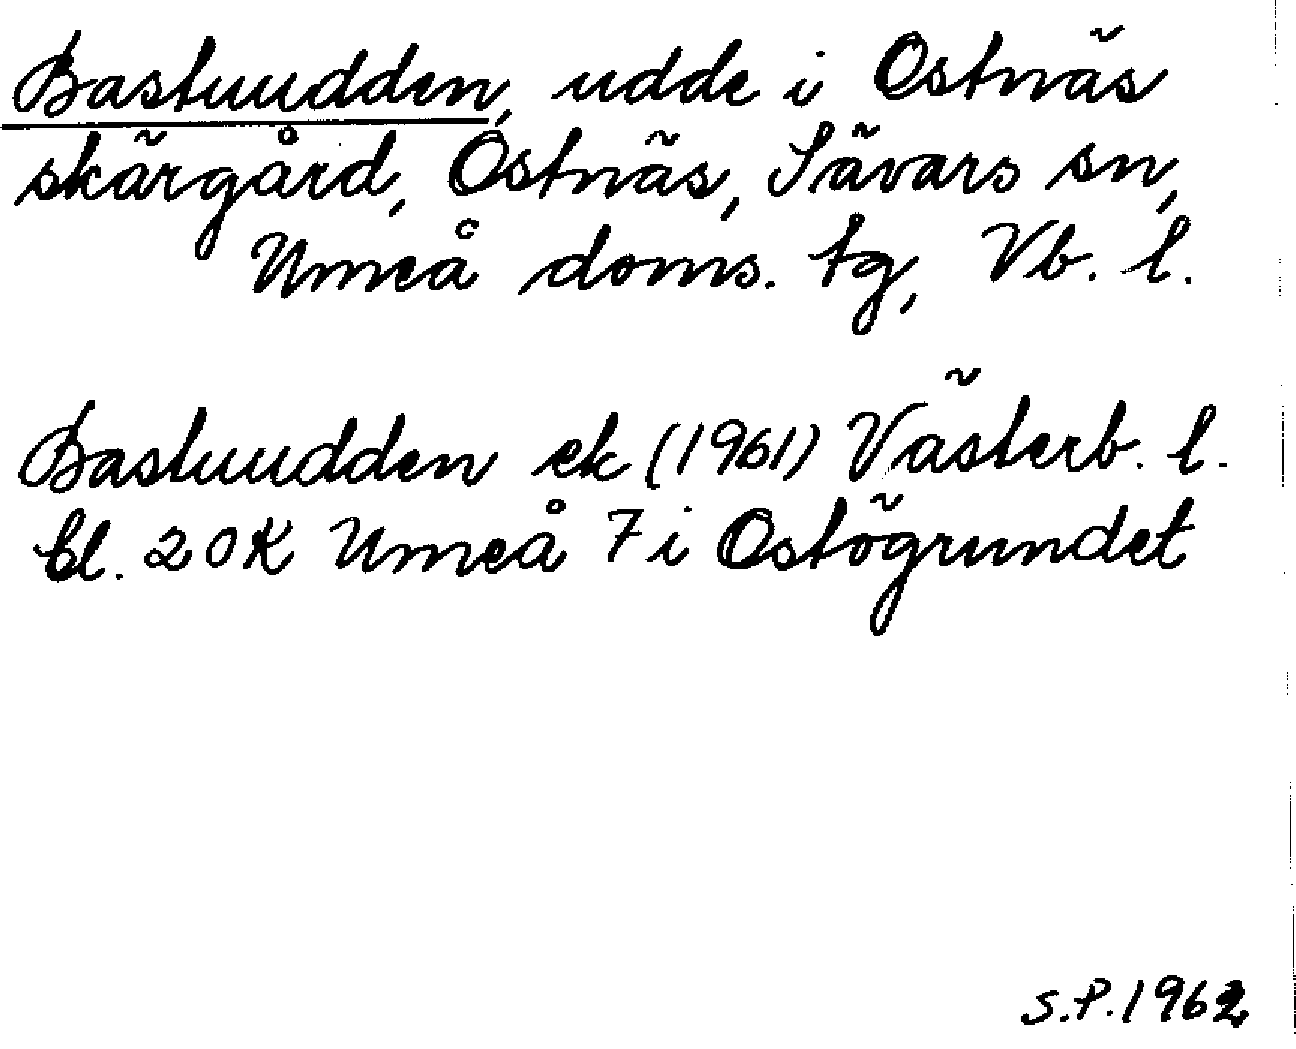 Bastuudden, udde i Ostnäs
skärgård, Ostnäs, Sävars sn,
Umeå doms. tg, Vb. l.
Bastuudden ek (1961) Västerb. l.
bl. 20K Umeå 7i Ostögrundet
S.P. 1962